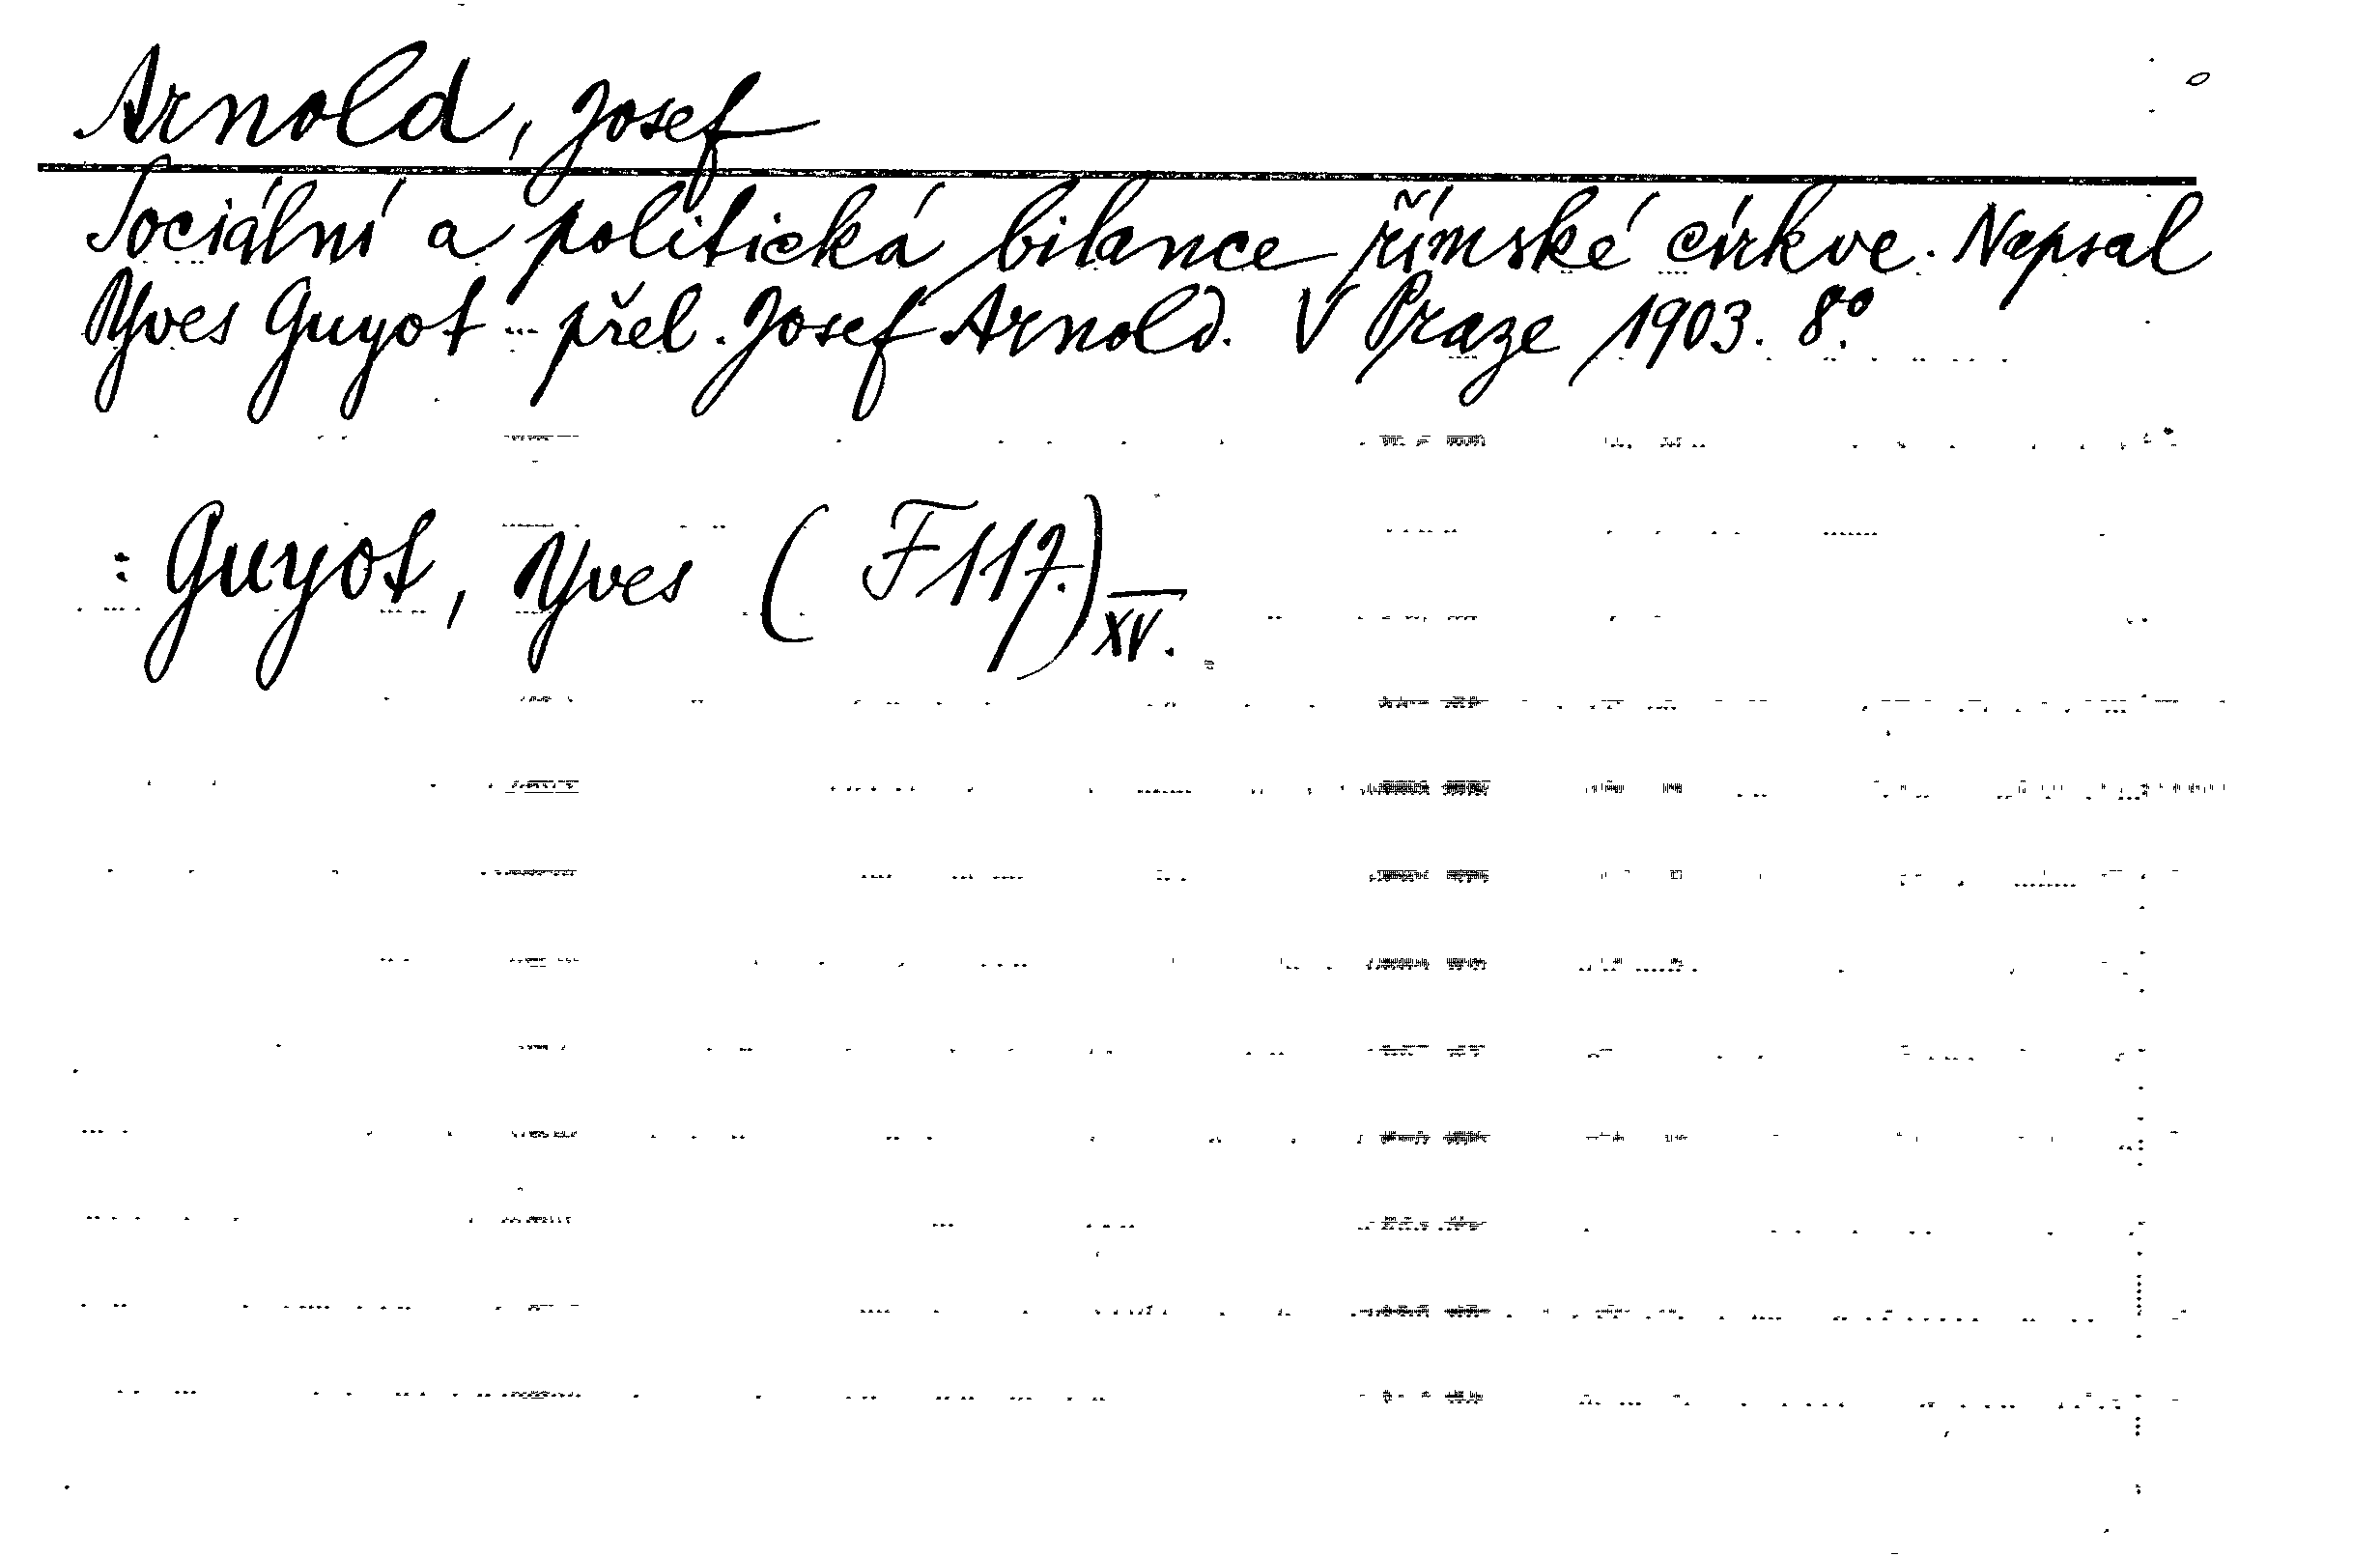 Arnold, Josef
Sociální a politická bilance římské církve. Napsal
Yves Guyot - přel. Josef Arnold. V Praze 1903. 8°.
: Guyot, Yves ( F 117.)
XV.